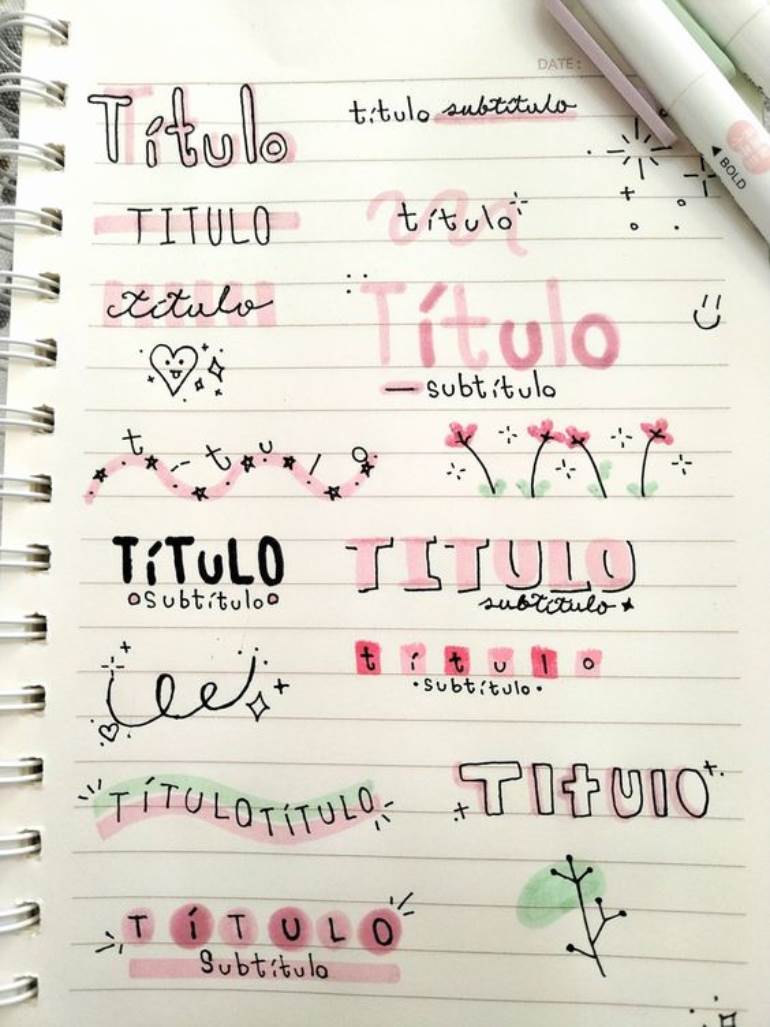 DATE:
Título
título subtítulo
BOLD
TITULO
título
título
Título
subtítulo
título
TíTULO
Subtítulo
TITULO
subtítulo
título
subtítulo
TÍTULOTÍTULO
TítulO
TÍTULO
Subtítulo